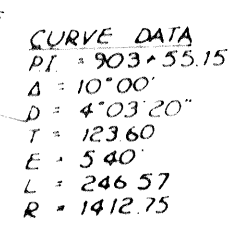 CURVE DATA
PI = 903+55.15
Δ = 10°00'
D = 4°03'20"
T = 123.60
E = 5.40'
L = 246.57
R = 1412.75